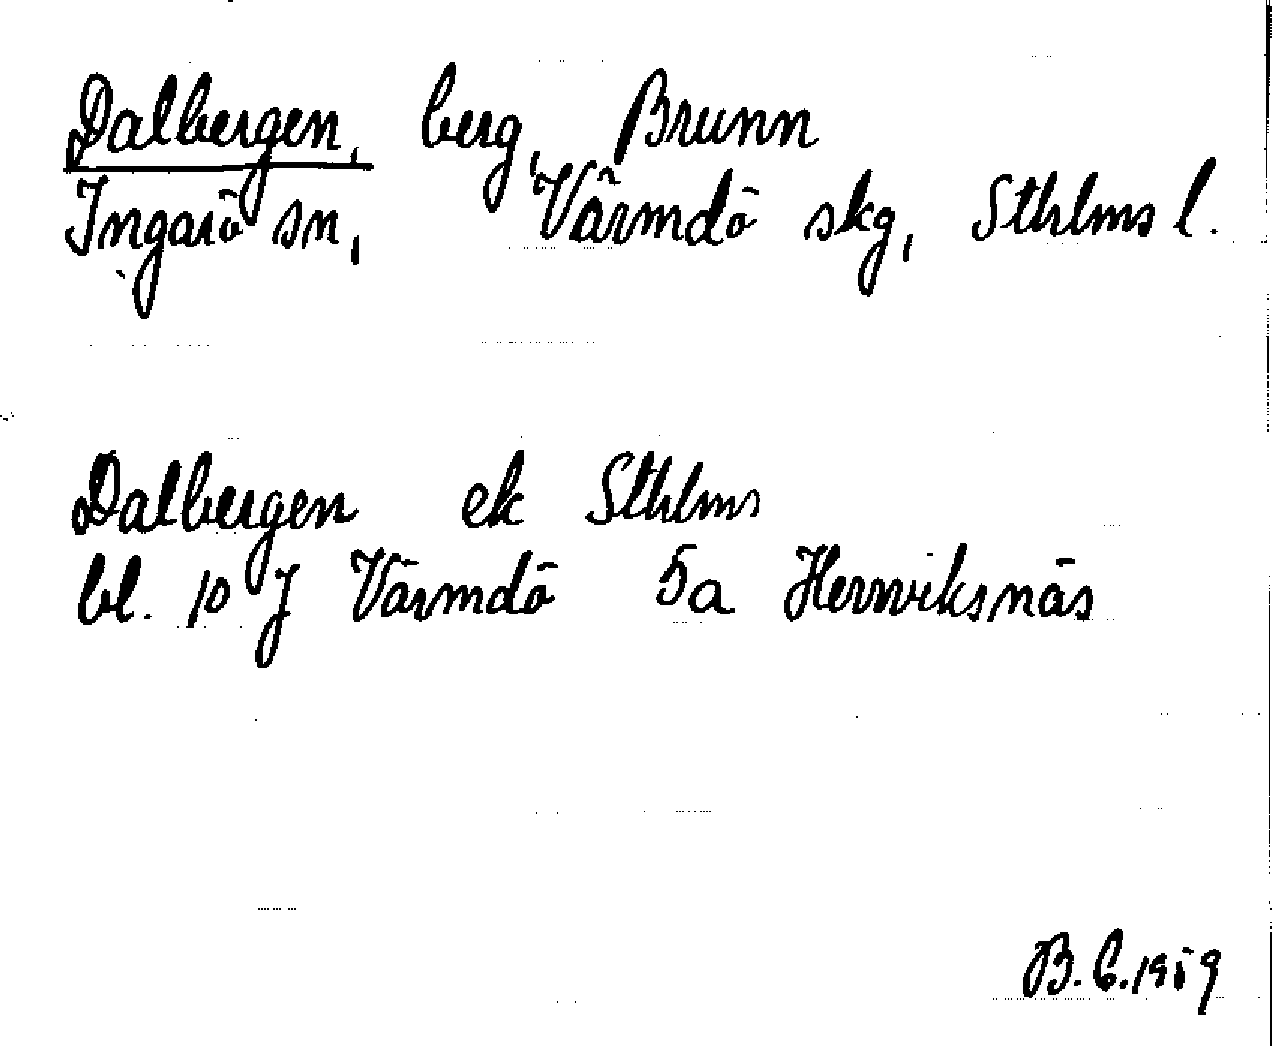 Dalbergen, berg, Brunn
Ingarö sn, Värmdö skg, Sthlms l.
Dalbergen ek Sthlms
bl. 10 J Värmdö 5a Herrviksnäs
B.C.1959